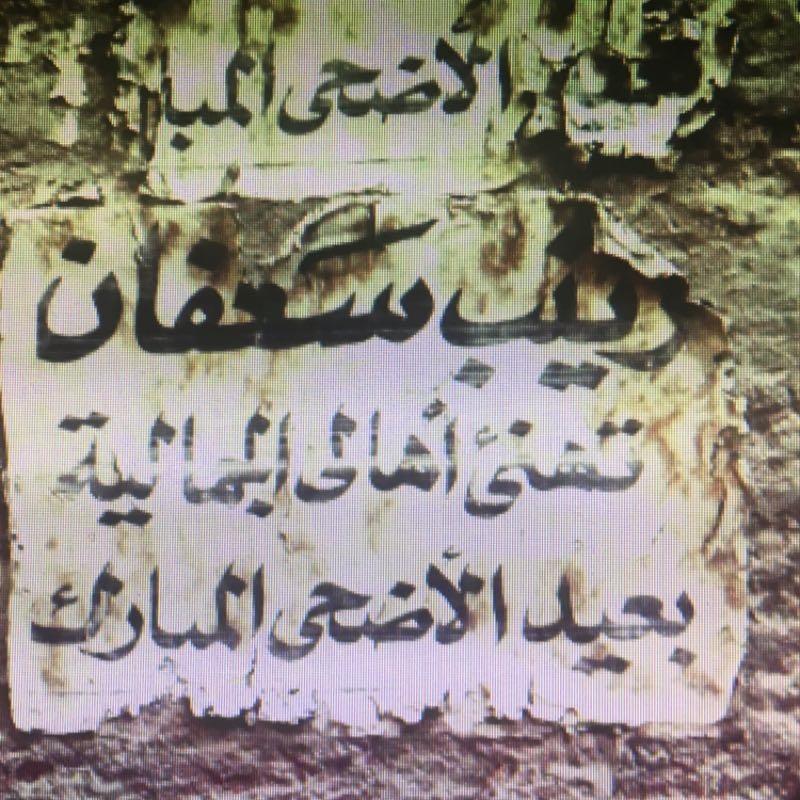 الأضحى المبا
زينب سعفان
تهنئ أهالى الجمالية
بعيد الأضحى المبارك